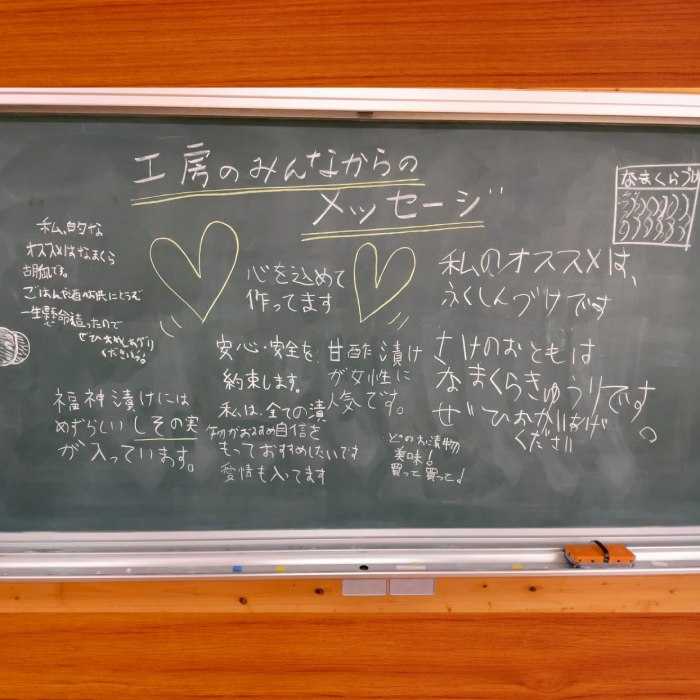 工房のみんなからの
メッセージ
なまくらづけ
私的な
オススメはなまくら
胡瓜です。
ごはんや酒のお供にどうぞ
一生懸命造ったので
ぜひおめしあがり
ください。
心を込めて
作ってます
私のオススメは、
ふくしんづけです
福神漬けには
めずらしいしその実
が入っています。
安心・安全を
約束します。
私は、全ての漬
物がおすすめ自信を
もっておすすめしたいです
愛情も入ってます
甘酢漬け
が女性に
人気です。
どのお漬物
美味！
買って買っと！
さけのおともは
なまくらきゅうりです。
ぜひおあがり
ください